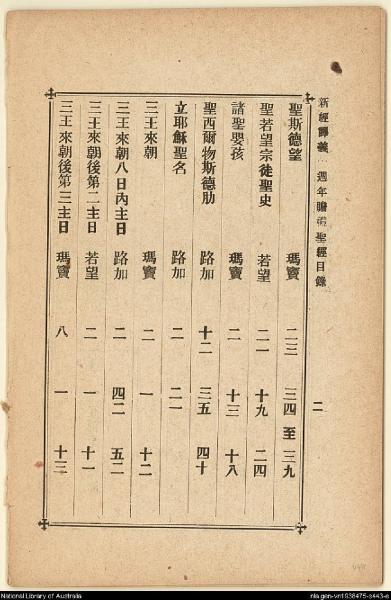 新經譯義　週年瞻禮聖經目錄　二
聖斯德望　瑪竇　二三　三四至三九
聖若望宗徒聖史　若望　二一　十九　二四
諸聖嬰孩　瑪竇　二　十三　十八
聖西爾物斯德肋　路加　十二　三五　四十
立耶穌聖名　路加　二　二一
三王來朝　瑪竇　二　一　十二
三王來朝八日內主日　路加　二　四二　五二
三王來朝後第二主日　若望　二　一　十一
三王來朝後第三主日　瑪竇　八　一　十三
National Library of Australia
nla.gen-vn1938475-s443-e